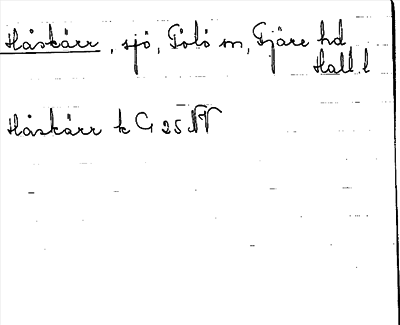 Håskärr, sjö, Tölö sn, Fjäre hd
Hall l
Håskärr k G 25 NV